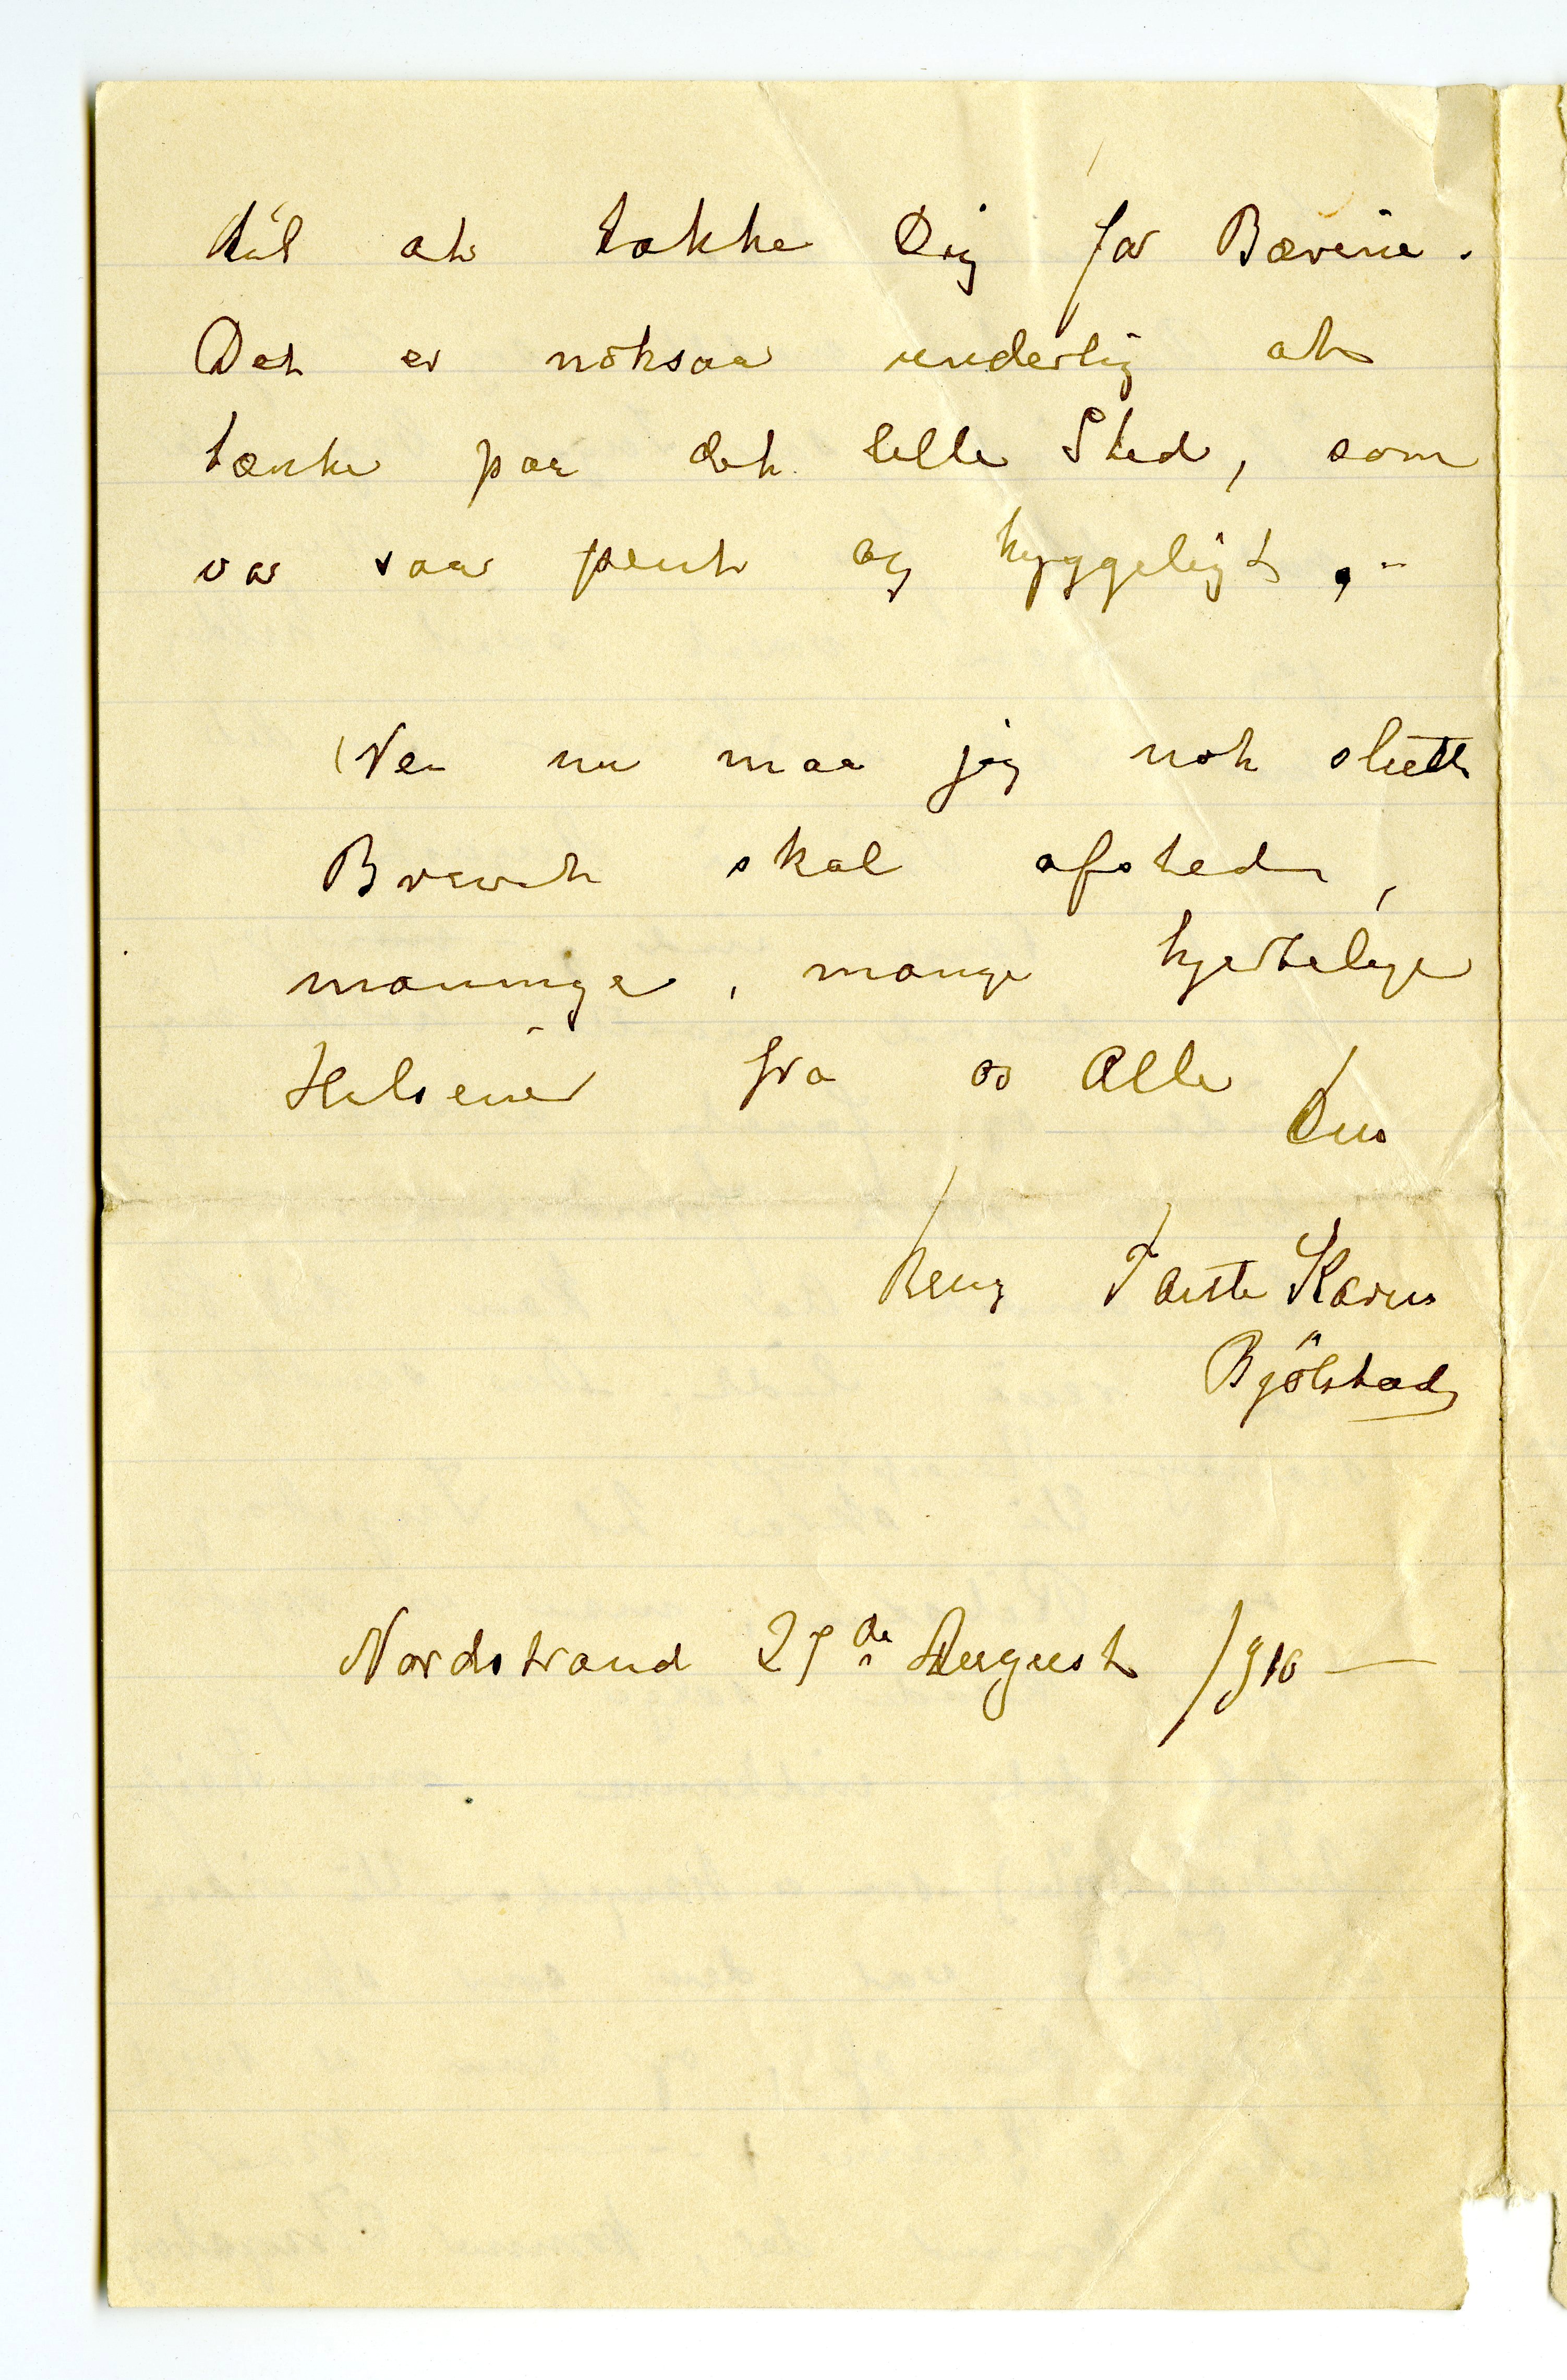 til at takke Dig for Bærene.
Det er noksaa underlig at
tænke paa det lille Sted, som
var saa pent og hyggeligt, -
Nei nu maa jeg nok slutte
Brevet skal afsted,
mannge, mange hjertelige
Helsener fra os Alle
Din
heng Tante Karen
Bjölstad
Nordstrand 27de August 1910 —